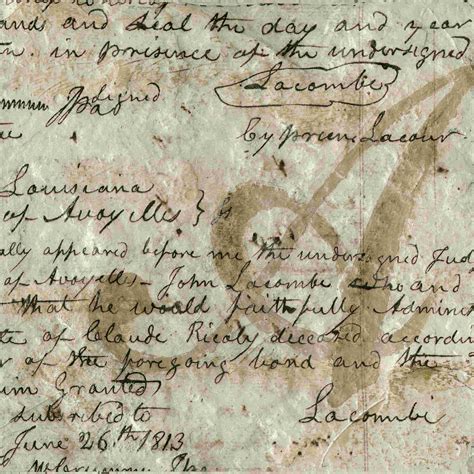 ands and seal the day and year
in presence of the undersigned
Lacombe
signed
Cyprien Lacour
Louisiana
of Avoyelles }
ally appeared before me the undersigned Jud
of Avoyells - John Lacombe who and
that he would faithfully Adminis
te of Claude Ricaly deceased, accordin
r of the foregoing bond and the
um Granted
subscribed to
Lacombe
June 26th 1813